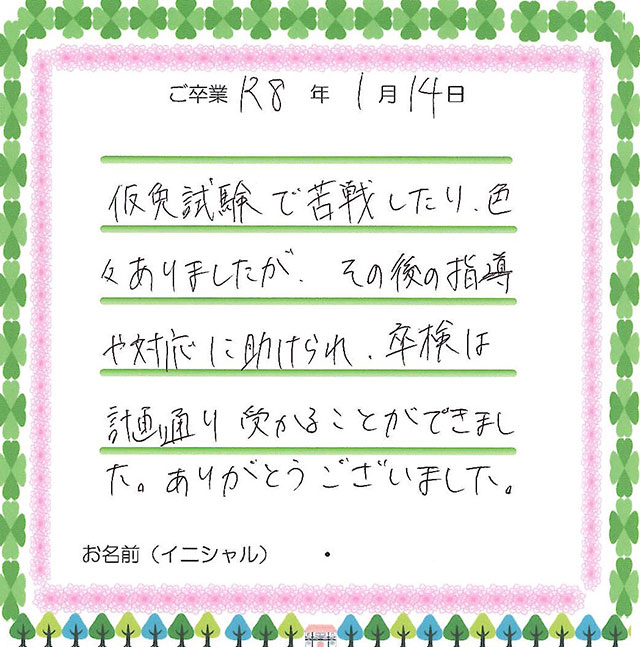 ご卒業 R8 年 1月 14日
仮免試験で苦戦したり、色
々ありましたが、その後の指導
や対応に助けられ、卒検は
計画通り受かることができまし
た。ありがとうございました。
お名前（イニシャル） ・